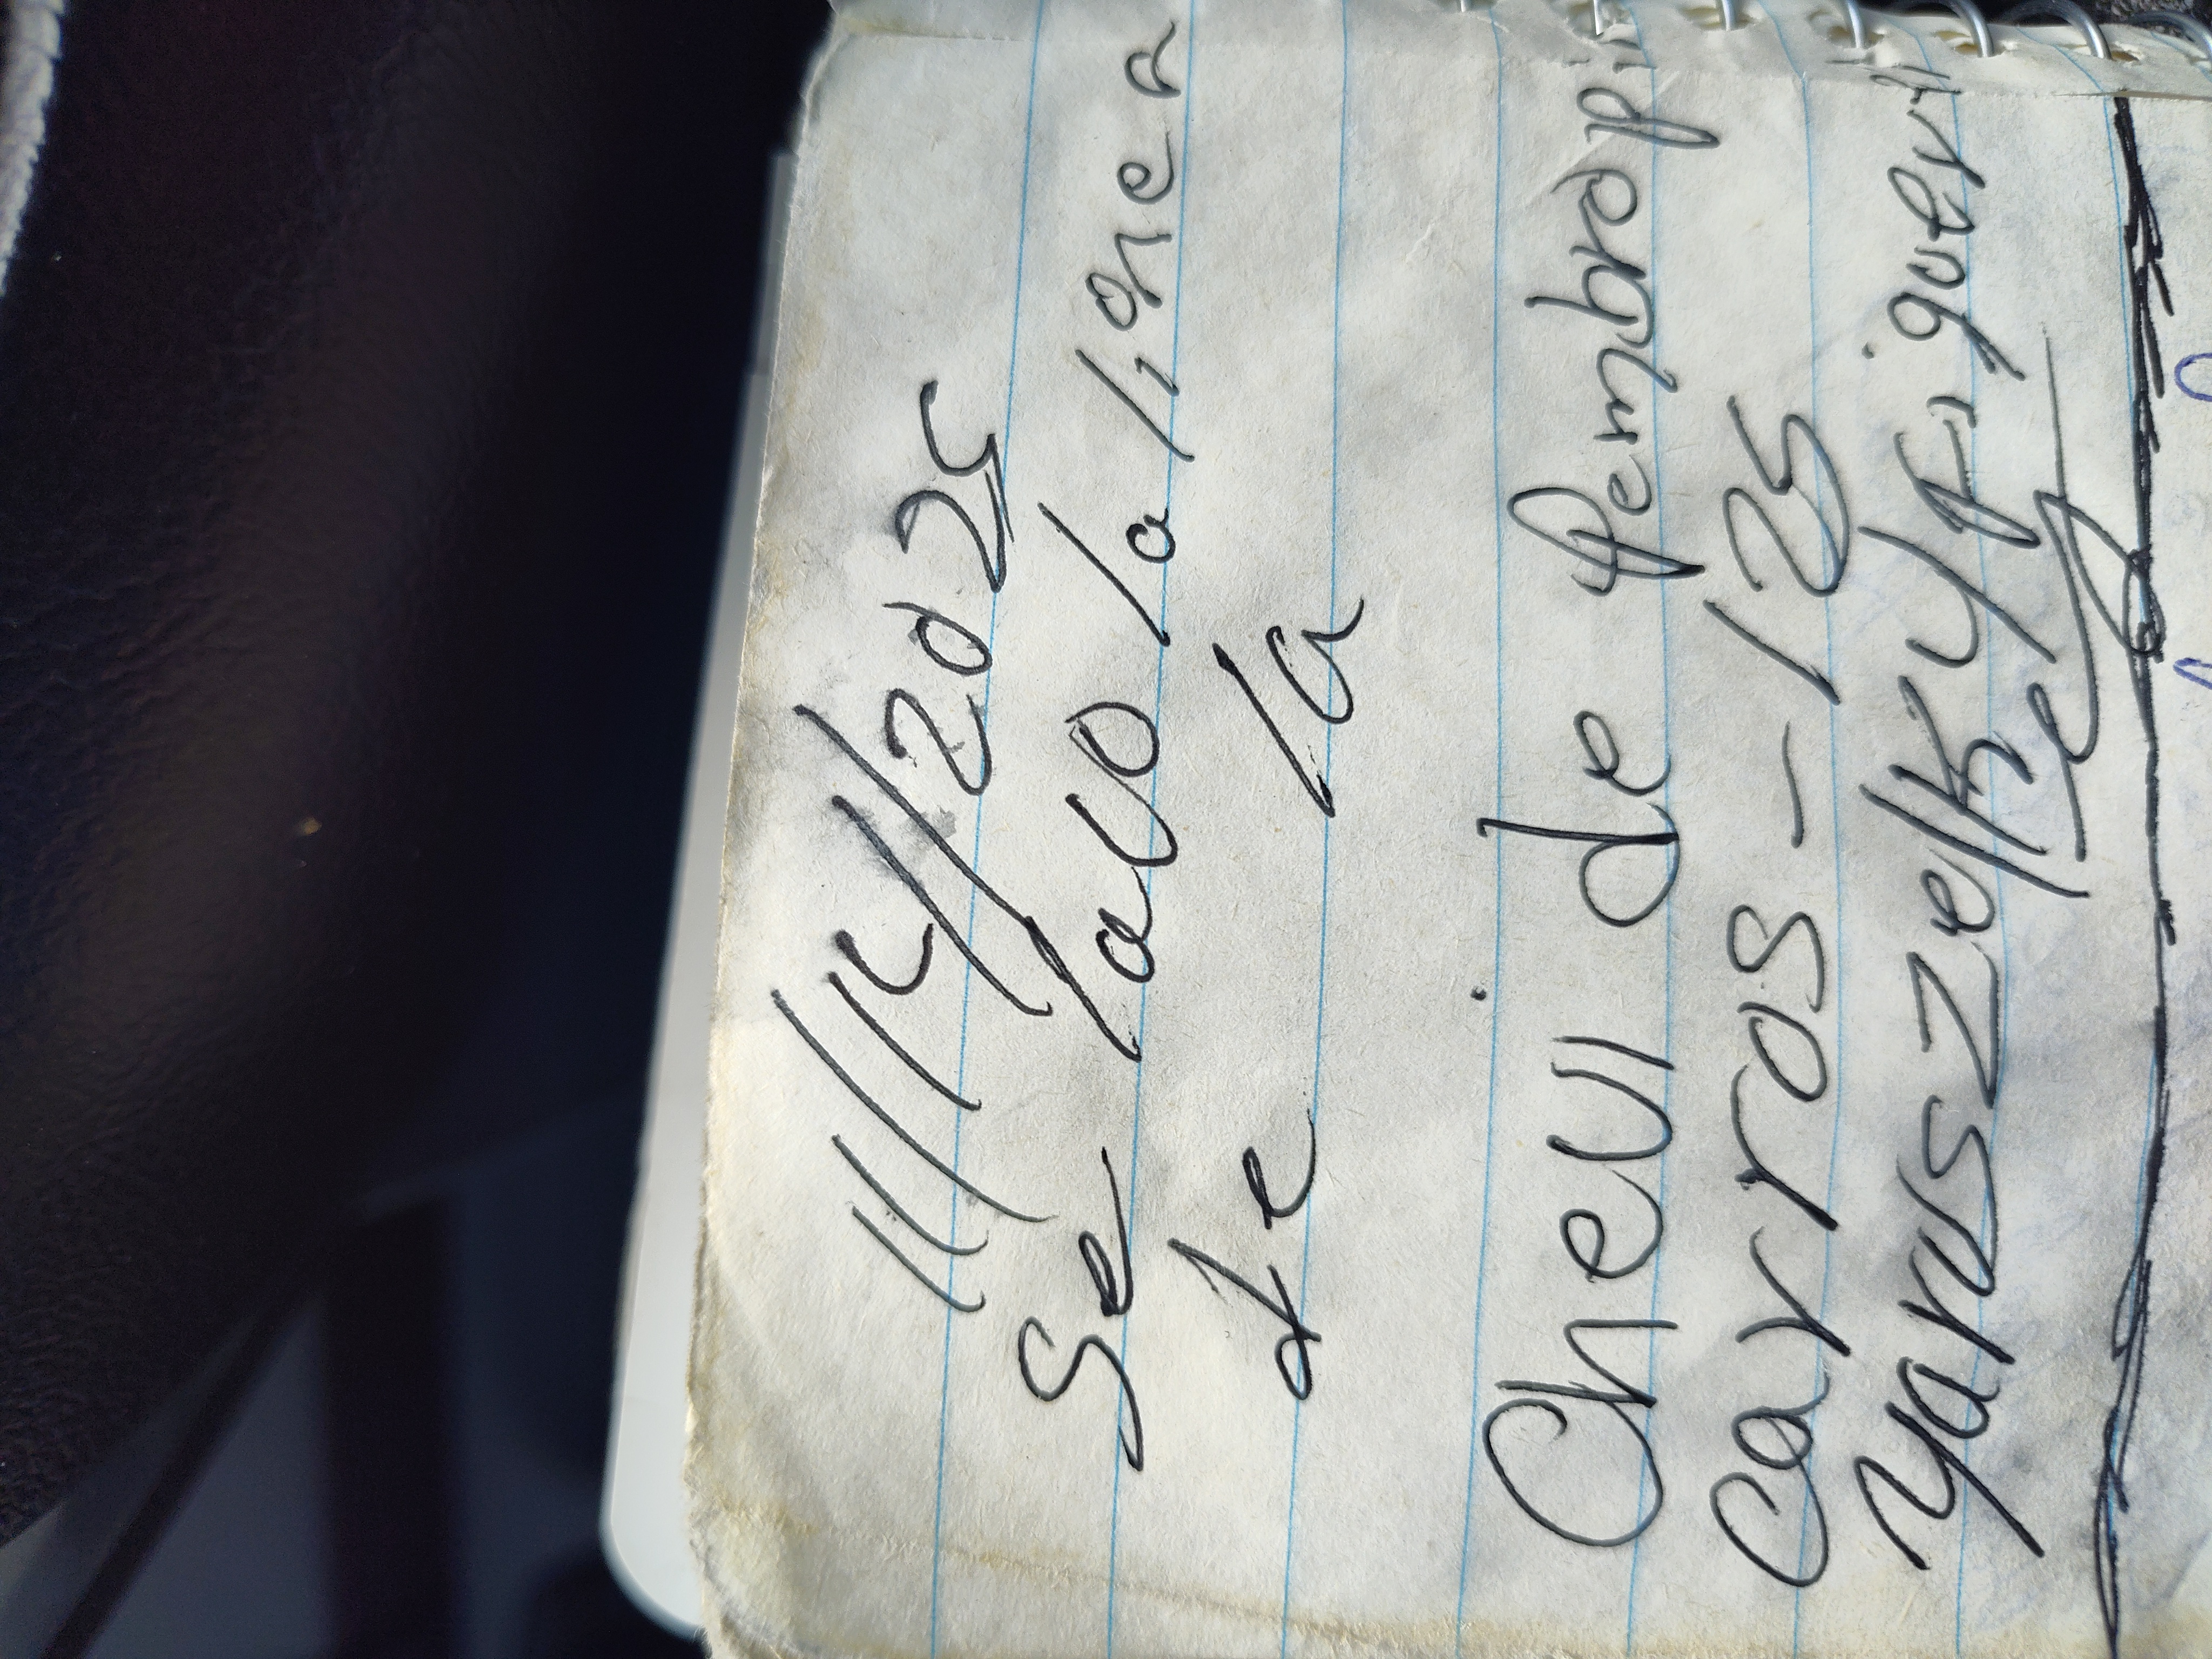 11/14/2025
Se lavo la linea
de la
Chevi de Pembropi
carros - 125
yarusZelky Pi